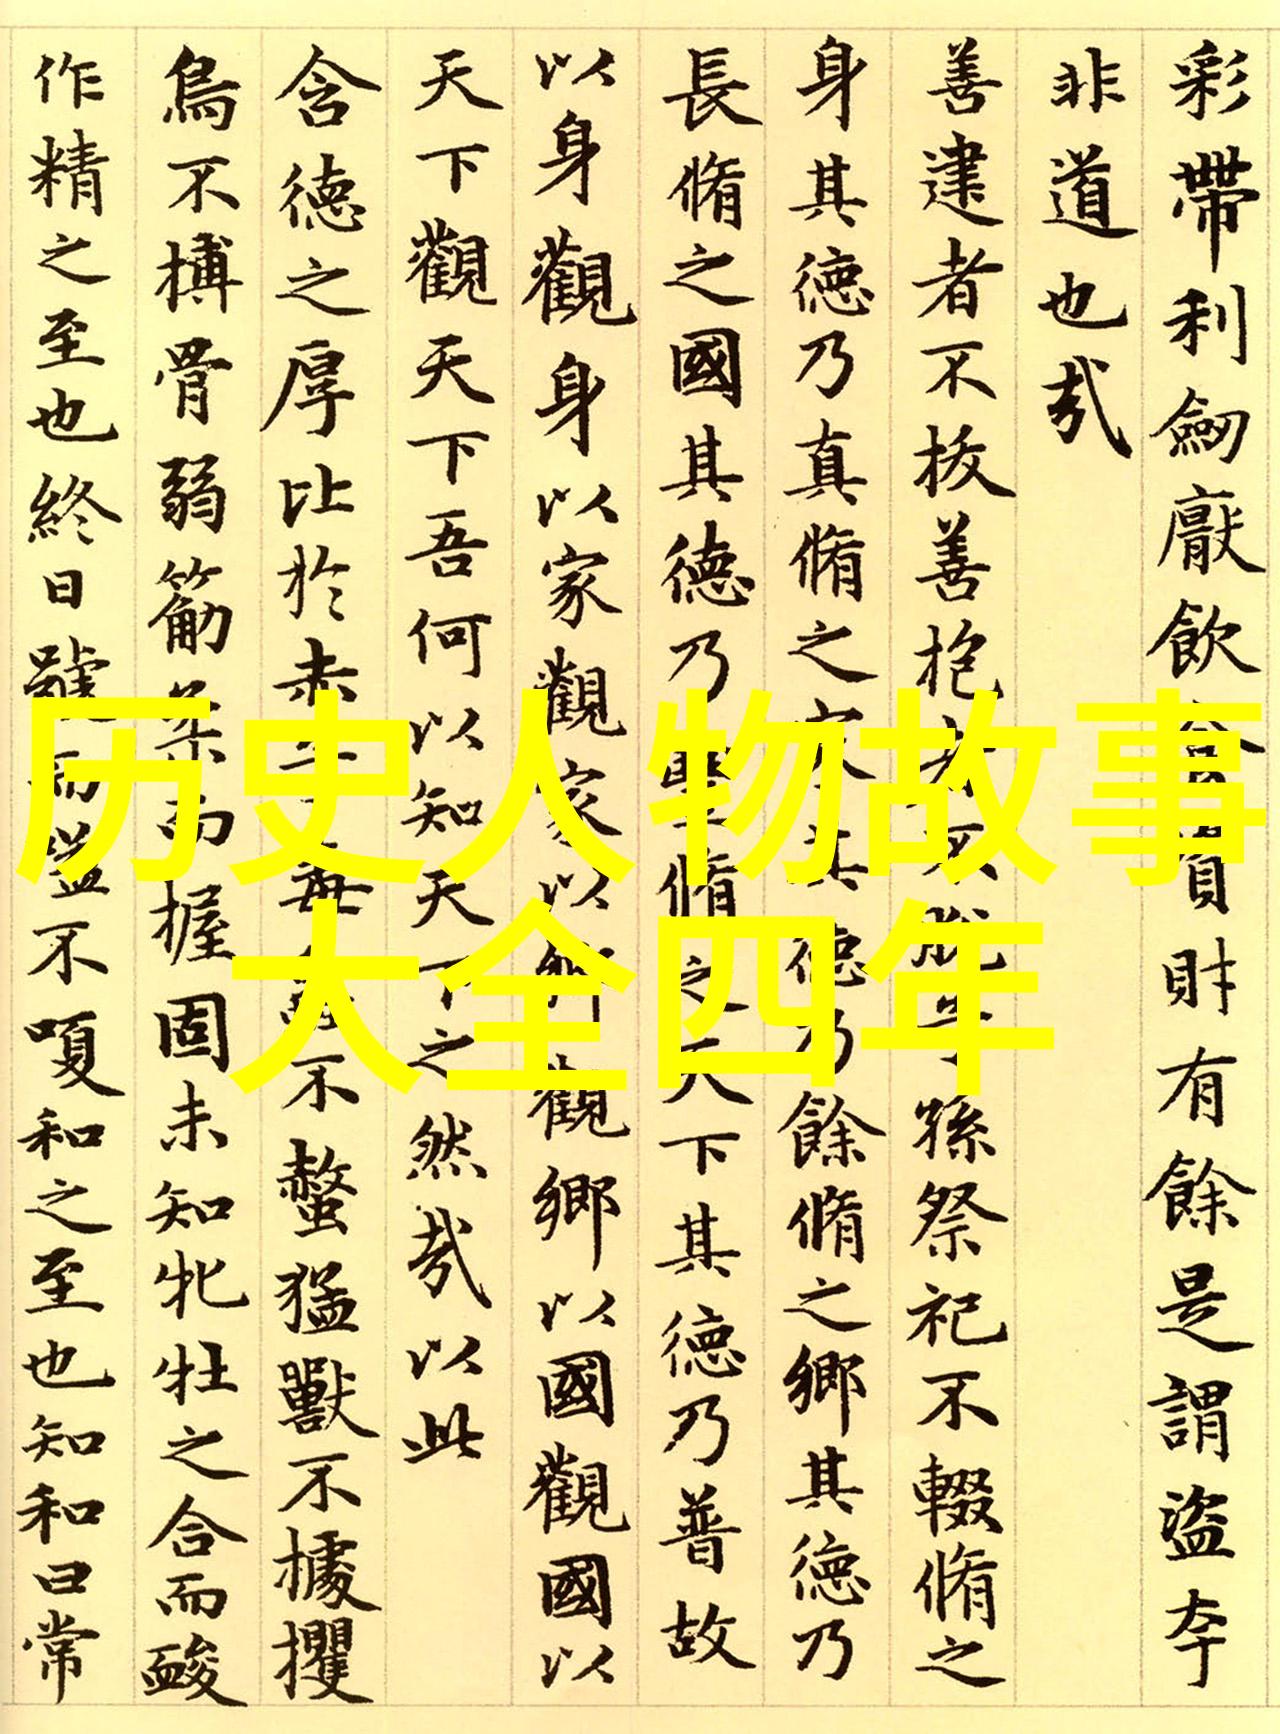 历史人物故事
大全四年
彩帶利劒厭飲食資財有餘是謂盜夸
非道也哉
善建者不拔善抱者不脫子孫祭祀不輟脩之
身其德乃真脩之家其德乃餘脩之鄉其德乃
長脩之國其德乃豐脩之天下其德乃普故
以身觀身以家觀家以鄉觀鄉以國觀國以
天下觀天下吾何以知天下之然哉以此
含德之厚比於赤子毒蟲不螫猛獸不據攫
鳥不搏骨弱筋柔而握固未知牝牡之合而
作精之至也終日號而嗌不嗄和之至也知和曰常